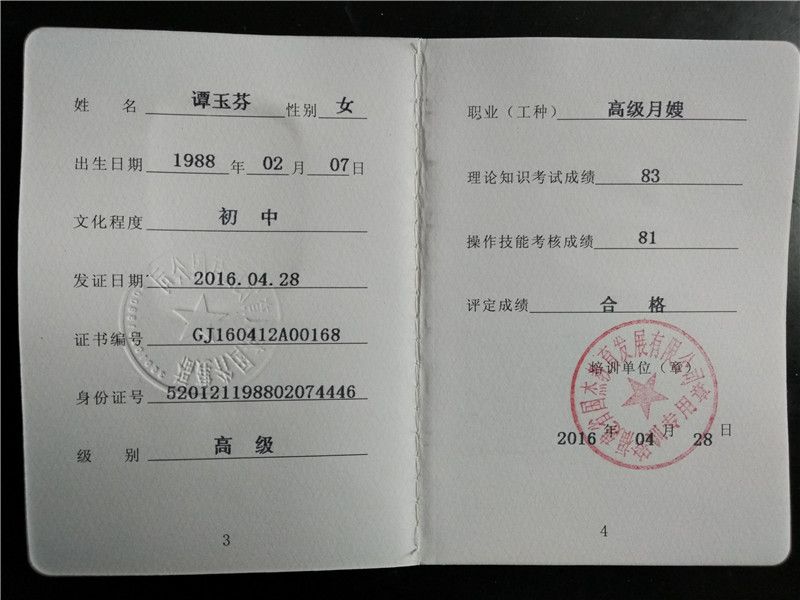 姓 名 谭玉芬 性别 女
出生日期 1988 年 02 月 07 日
文化程度 初 中
发证日期 2016.04.28
证书编号 GJ160412A00168
身份证号 520121198802074446
级 别 高 级
3
职业（工种） 高级月嫂
理论知识考试成绩 83
操作技能考核成绩 81
评定成绩 合 格
培训单位（章）
2016 年 04 月 28 日
培训专用章
4